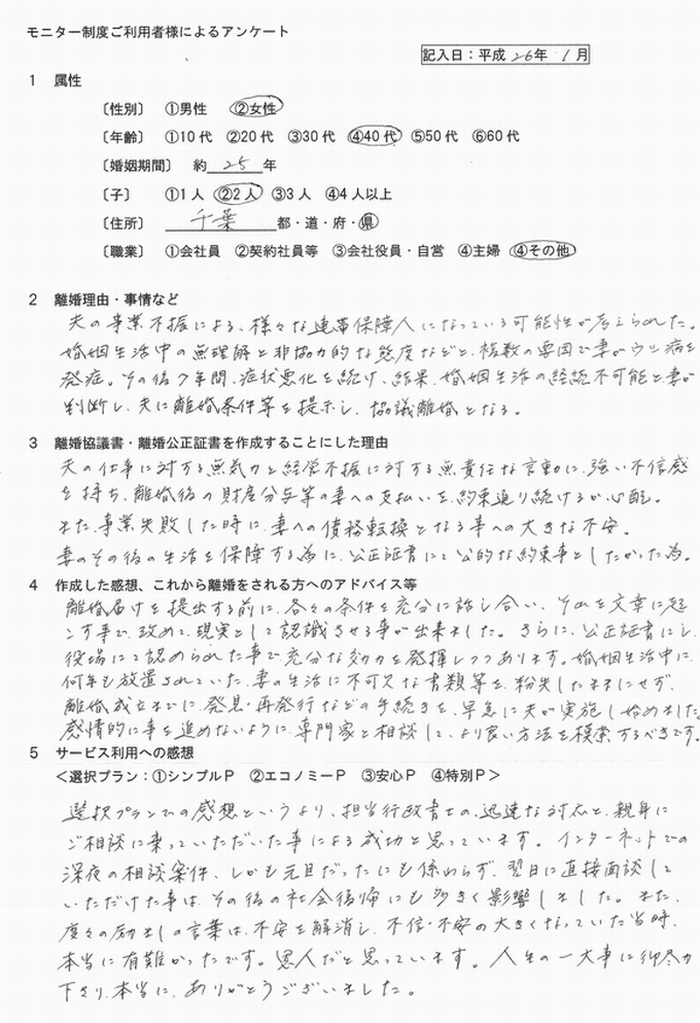 モニター制度ご利用者様によるアンケート
記入日：平成 26年 1月
1 属性
〔性別〕 ①男性 ②女性
〔年齢〕 ①10代 ②20代 ③30代 ④40代 ⑤50代 ⑥60代
〔婚姻期間〕 約 25 年
〔子〕 ①1人 ②2人 ③3人 ④4人以上
〔住所〕 千葉 都・道・府・県
〔職業〕 ①会社員 ②契約社員等 ③会社役員・自営 ④主婦 ④その他
2 離婚理由・事情など
夫の事業不振による、様々な連帯保障人になっている可能性が考えられた。
婚姻生活中の無理解と非協力的な態度などと、複数の要因で妻がウツ病を
発症。その後7年間、症状悪化を続け、結果、婚姻生活の継続不可能と妻が
判断し、夫に離婚条件等を提示し、協議離婚となる。
3 離婚協議書・離婚公正証書を作成することにした理由
夫の仕事に対する無気力と経営不振に対する無責任な言動に、強い不信感
を持ち、離婚後の財産分与等の妻への支払いを、約束通り続けるか心配。
また、事業失敗した時に、妻への債務転換となる事への大きな不安。
妻のその後の生活を保障する為に、公正証書にて公的な約束事としたかった為。
4 作成した感想、これから離婚をされる方へのアドバイス等
離婚届けを提出する前に、各々の条件を充分に話し合い、それを文章に起
こす事で、改めて、現実として認識させる事が出来ました。さらに、公正証書にし、
役場にて認められた事で、充分な効力を発揮しつつあります。婚姻生活中に、
何年も放置されていた、妻の生活に不可欠な書類等を、紛失したままにせず、
離婚成立までに、発見・再発行などの手続きを、早急に夫が実施し始めました。
感情的に事を進めないように、専門家と相談して、より良い方法を模索するべきです。
5 サービス利用への感想
＜選択プラン：①シンプルP ②エコノミーP ③安心P ④特別P＞
選択プランでの感想というより、担当行政書士の、迅速な対応と、親身に
ご相談に乗っていただいた事による成功と思っています。インターネットでの
深夜の相談案件、しかも元旦だったにも係わらず、翌日に直接面談して
いただけた事は、その後の社会復帰にも多きく影響しました。また、
度々の励ましの言葉は、不安を解消し、不信・不安の大きくなっていた当時、
本当に有難かったです。恩人だと思っています。人生の一大事に御尽力
下さり、本当に、ありがとうございました。